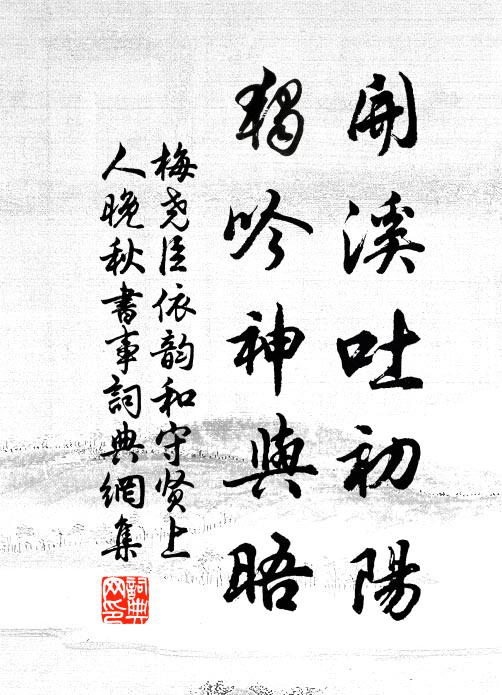 開溪吐初陽
獨吟神與晤
梅尧臣依韵和守贤上
人晚秋書事詞典網集
詞典
网印